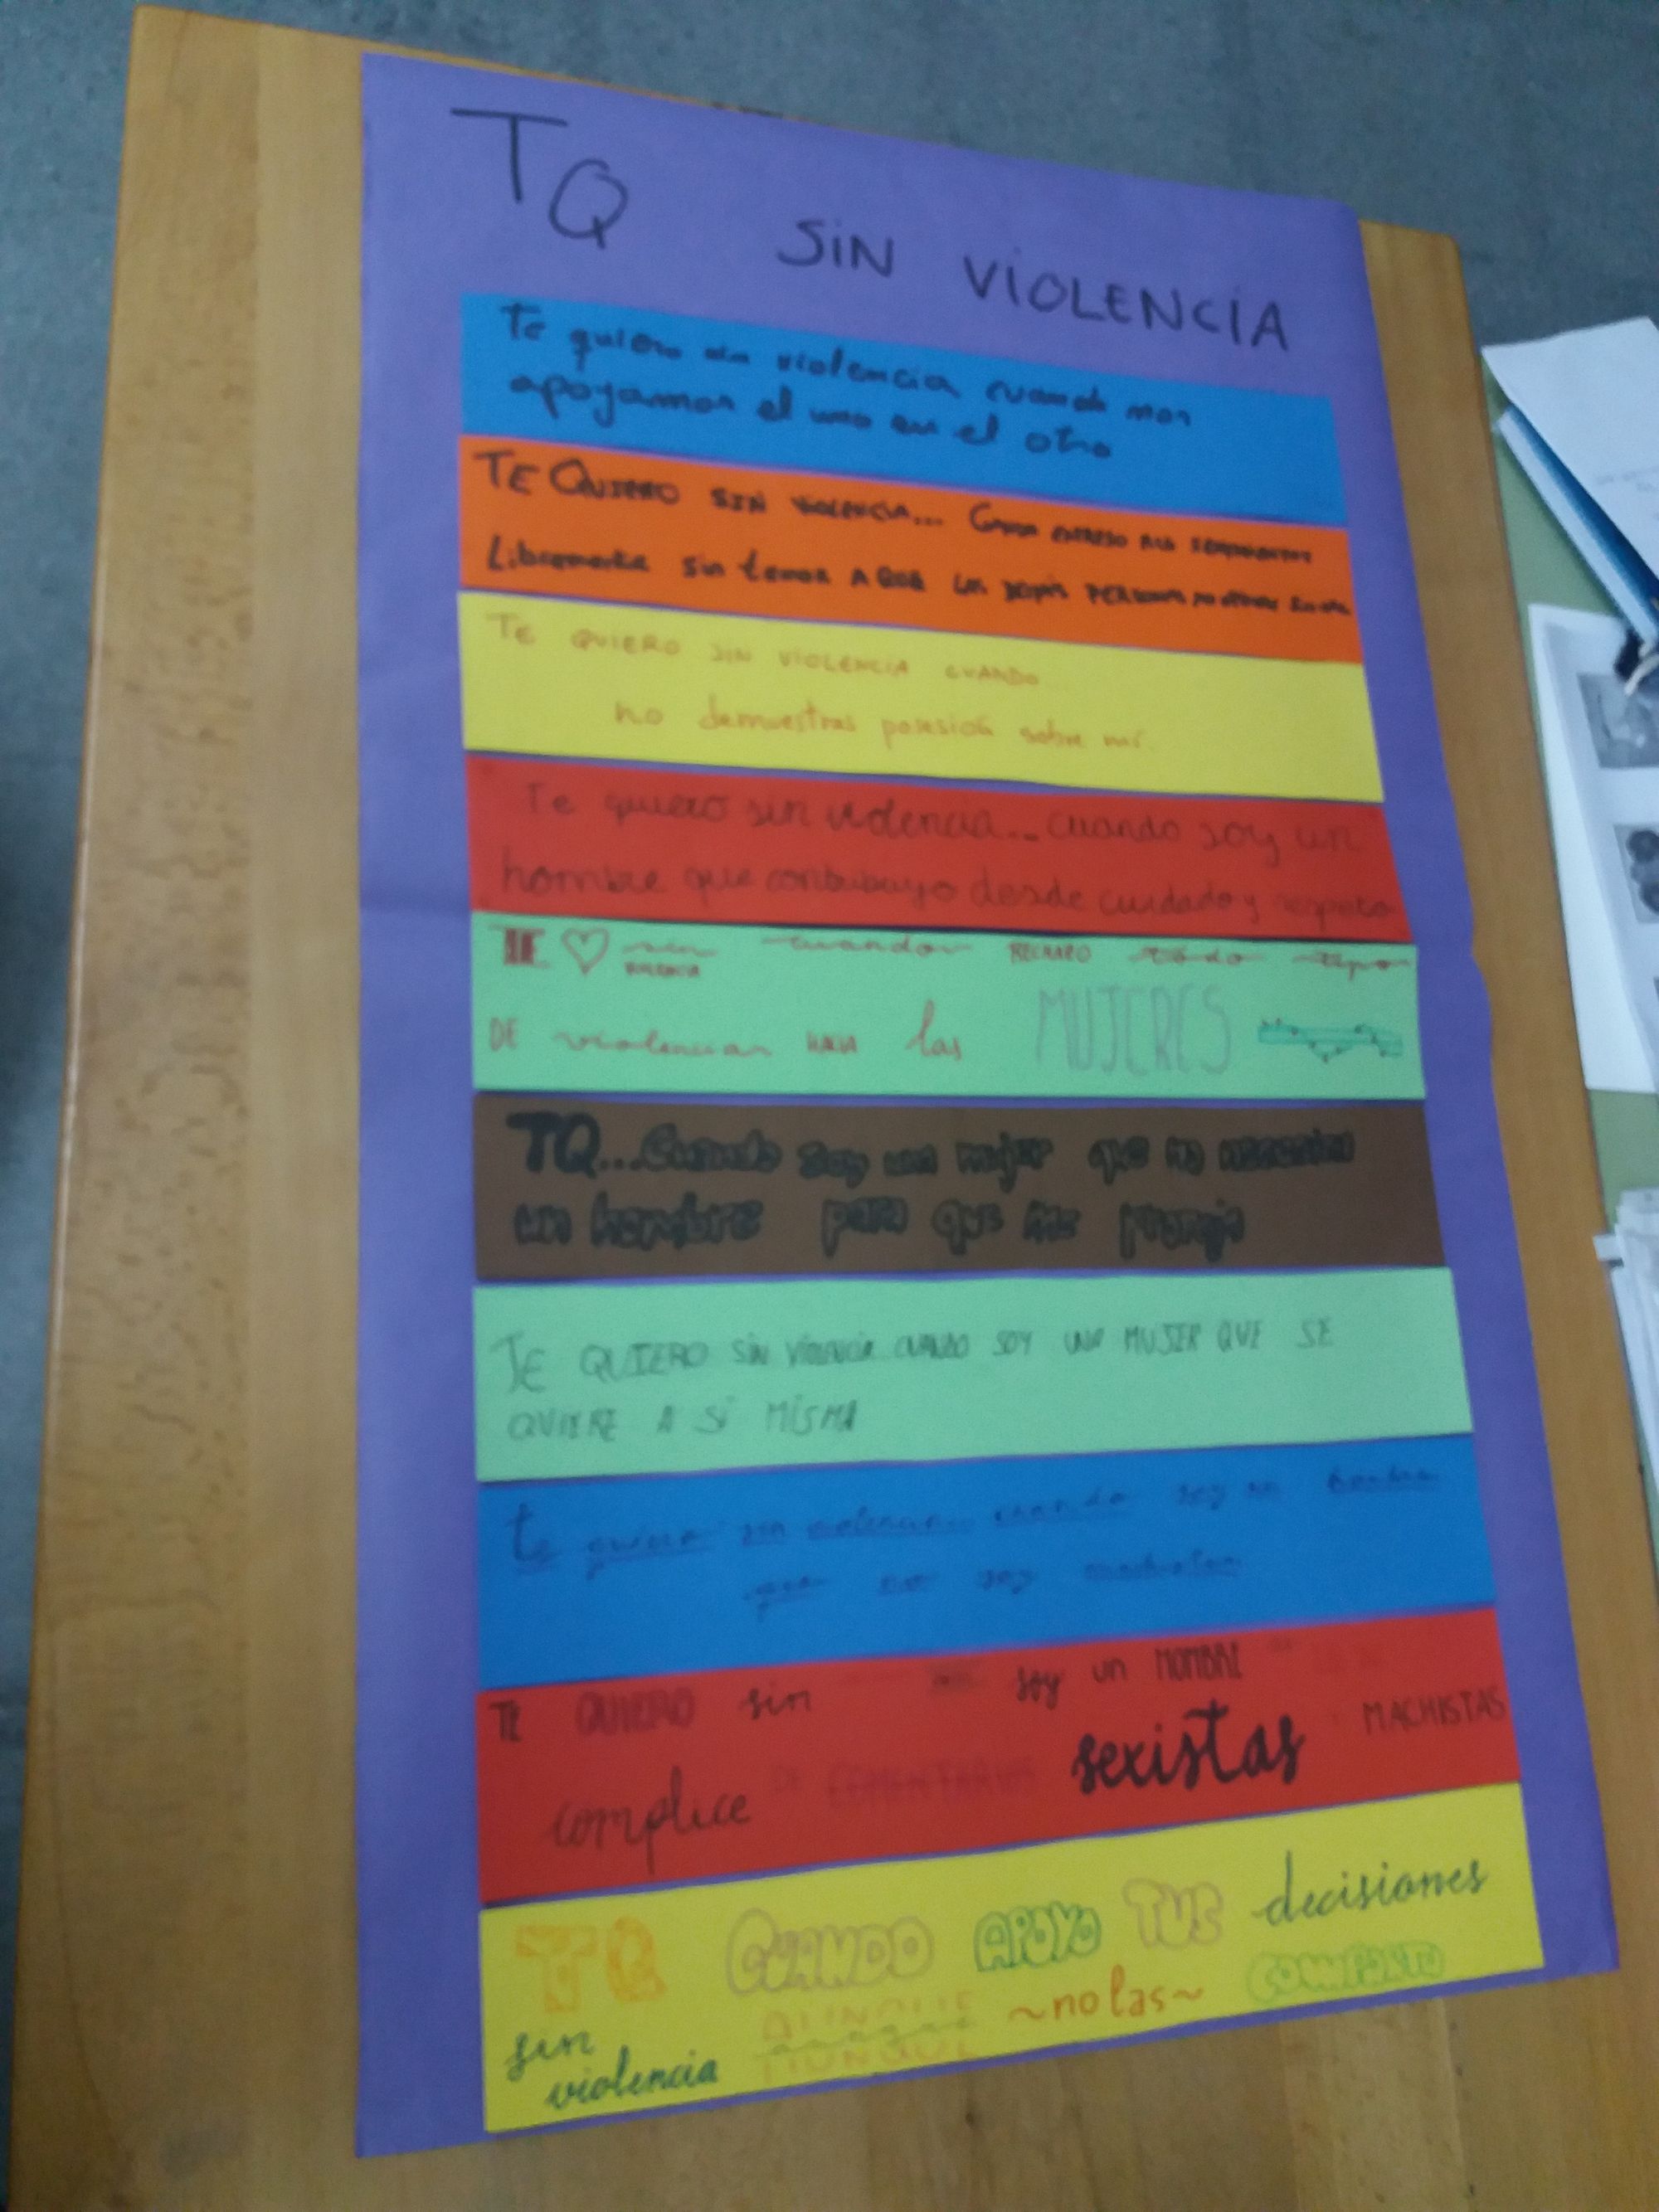 TQ SIN VIOLENCIA
Te quiero sin violencia cuando nos
apoyamos el uno en el otro
TE QUIERO SIN VIOLENCIA... CUANDO EXPRESO MIS SENTIMIENTOS
Libremente sin temor A QUE LAS DEMÁS PERSONAS
TE QUIERO SIN VIOLENCIA CUANDO
no demuestras posesión sobre mí
Te quiero sin violencia... cuando soy un
hombre que contribuyo desde cuidado y respeto
TE ♡ sin VIOLENCIA cuando RECHAZO todo tipo
DE violencia HACIA las MUJERES
TQ... Cuando soy una mujer que no necesita
un hombre para que me proteja
TE QUIERO SIN VIOLENCIA CUANDO SOY UNA MUJER QUE SE
QUIERE A SÍ MISMA
te quiero sin violencia... cuando soy un hombre
que no soy machista
TE QUIERO sin soy un HOMBRE
complice DE COMENTARIOS sexistas MACHISTAS
TQ CUANDO APOYO TUS decisiones
sin violencia AUNQUE ~no las~ COMPARTO